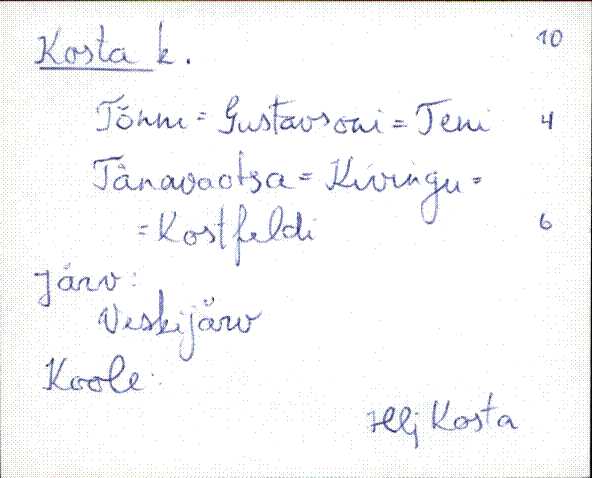 Kosta k. 10
Tõnni = Gustavsoni = Teni 4
Tänavaotsa = Kivingu =
= Kostfeldi 6
Järv:
Veskijärv
Koole:
Kosta